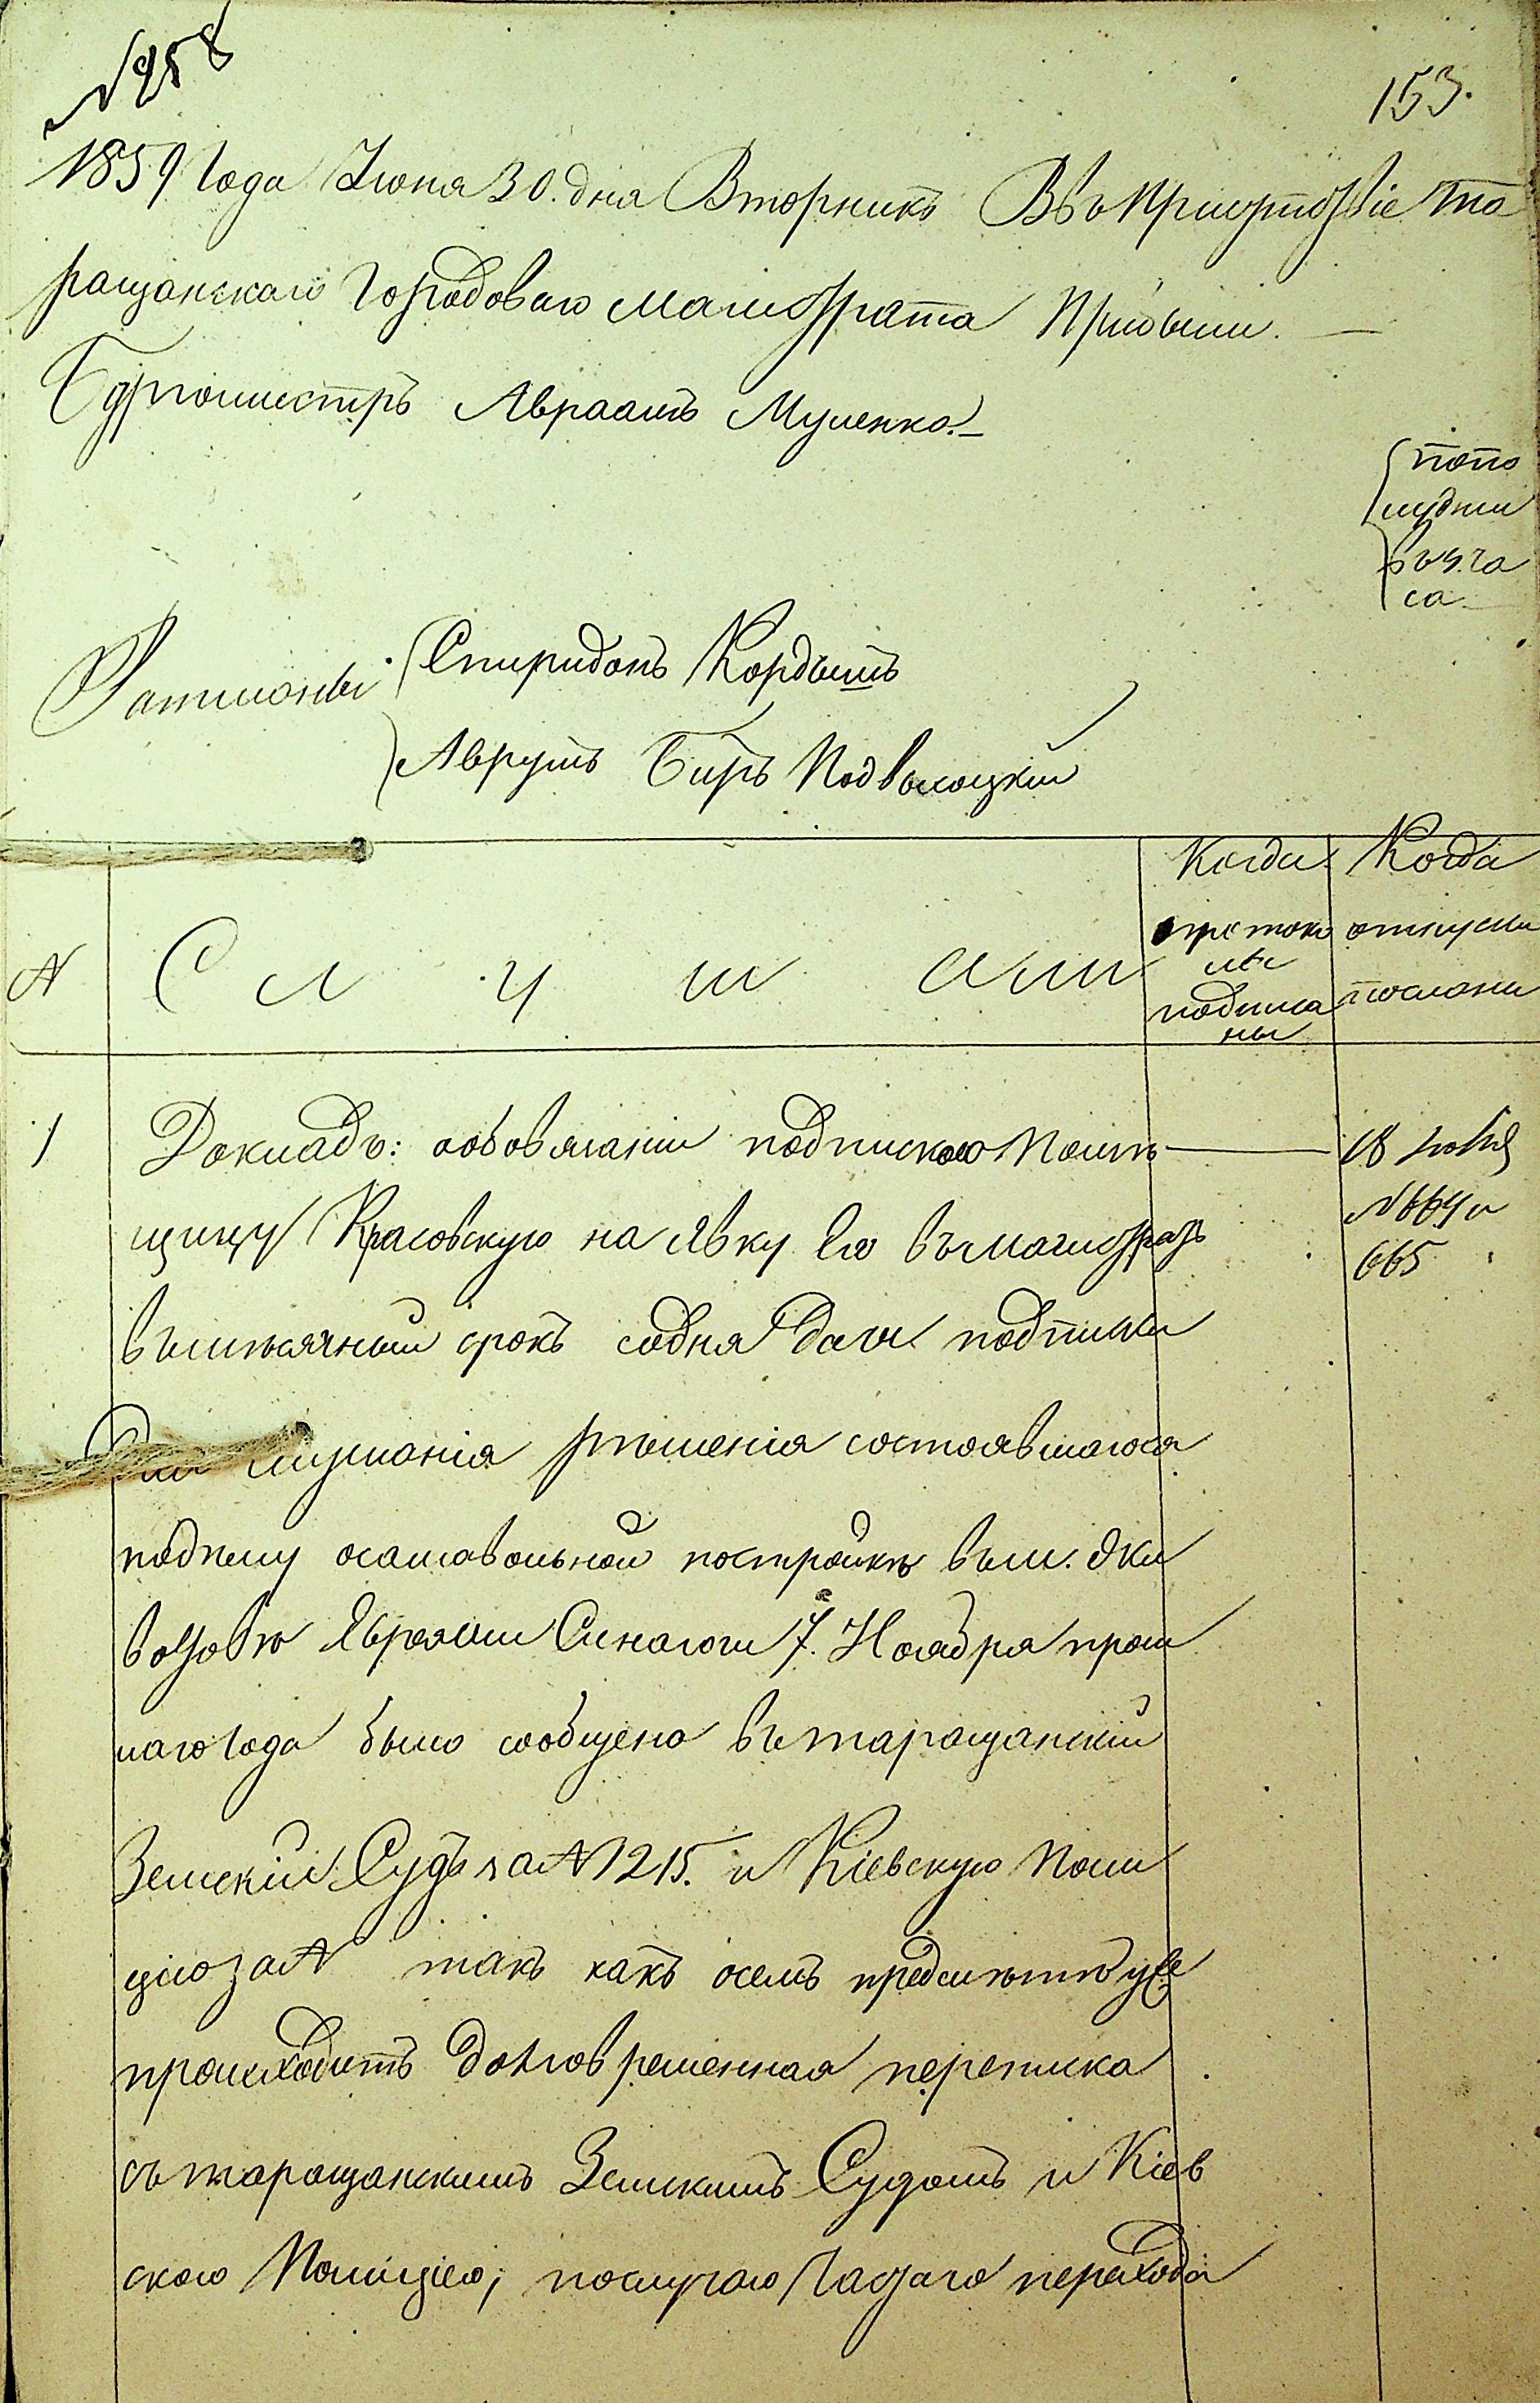 №958
153.
1859 Года Июня 30. дня Вторникъ Въ присутствіе та
ращанскаго Городоваго магистрата Прибыли. —
Бургомистръ Авраамъ Муленко. —
попо
лудни
въ
са
Ратманы Спиридонъ Кордышъ
Аврумъ Беръ Подвысоцкій
№ С л у ш али
Когда протоко лы подписа ны
Когда отпуски посланы
1 Докладъ: объ обязаніи подпискою Помѣ — 18 Июля
щицу Красовскую на явку Ея въ магистратъ №664 и
въ мѣсячный срокъ со дня дачи подписки 665
Для слушанія рѣшенія состоявшагося
по дѣлу о самовольной постройкѣ въ м.
Евреями Синагоги 7. Ноября прош
лаго Года было сообщено въ таращанскій
Земскій Судъ за №1215. и Кіевскую Поли
цію за № такъ какъ о семъ предметѣ уже
происходитъ долговременная переписка
съ таращанскимъ Земскимъ Судомъ и Кіев
скою Полиціею, по случаю Частаго перехода